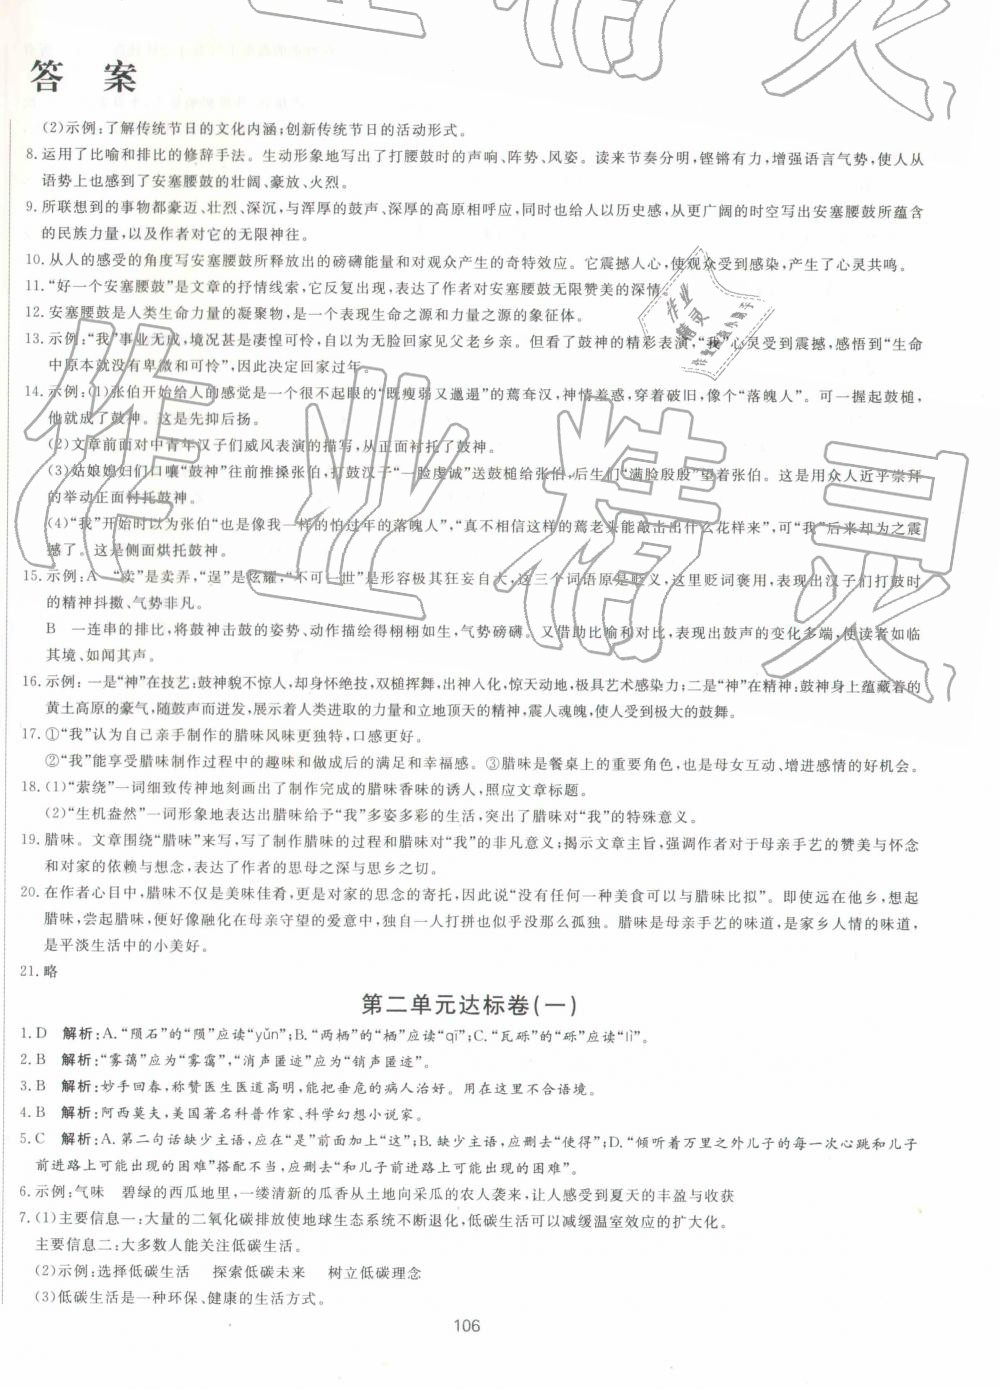 答 案
(2)示例:了解传统节日的文化内涵;创新传统节日的活动形式。
8.运用了比喻和排比的修辞手法。生动形象地写出了打腰鼓时的声响、阵势、风姿。读来节奏分明,铿锵有力,增强语言气势,使人从
语势上也感到了安塞腰鼓的壮阔、豪放、火烈。
9.所联想到的事物都豪迈、壮烈、深沉,与浑厚的鼓声、深厚的高原相呼应,同时也给人以历史感,从更广阔的时空写出安塞腰鼓所蕴含
的民族力量,以及作者对它的无限神往。
10.从人的感受的角度写安塞腰鼓所释放出的磅礴能量和对观众产生的奇特效应。它震撼人心,使观众受到感染,产生了心灵共鸣。
11.“好一个安塞腰鼓”是文章的抒情线索,它反复出现,表达了作者对安塞腰鼓无限赞美的深情
12.安塞腰鼓是人类生命力量的凝聚物,是一个表现生命之源和力量之源的象征体。
13.示例:“我”事业无成,境况甚是凄惶可怜,自以为无脸回家见父老乡亲。但看了鼓神的精彩表演,“我”心灵受到震撼,感到“生命
中原本就没有卑微和可怜”,因此决定回家过年。
14.示例:(1)张伯开始给人的感觉是一个很不起眼的“既瘦弱又邋遢”的蔫耷汉,神情羞怒,穿着破旧,像个“落魄人”。可一握起鼓槌,
他就成了鼓神。这是先抑后扬。
(2)文章前面对中青年汉子们威风表演的描写,从正面衬托了鼓神。
(3)姑娘媳妇们口嚷“鼓神”往前推搡张伯,打鼓汉子“一脸虔诚”送鼓槌给张伯,后生们“满脸殷殷”望着张伯。这是用众人近乎崇拜
的举动正面衬托鼓神。
(4)“我”开始时以为张伯“也是像我一样的怕过年的落魄人”,“真不相信这样的蔫老头能敲击出什么花样来”,可“我”后来却为之震
撼了。这是侧面烘托鼓神。
15.示例:A “卖”是卖弄,“逞”是炫耀,“不可一世”是形容极其狂妄自大,这三个词语原是贬义,这里贬词褒用,表现出汉子们打鼓时
的精神抖擞、气势非凡。
B 一连串的排比,将鼓神击鼓的姿势、动作描绘得栩栩如生,气势磅礴。又借助比喻和对比,表现出鼓声的变化多端,使读者如临
其境、如闻其声。
16.示例:一是“神”在技艺:鼓神貌不惊人,却身怀绝技,双槌挥舞,出神入化,惊天动地,极具艺术感染力;二是“神”在精神:鼓神身上蕴藏着的
黄土高原的豪气,随鼓声而迸发,展示出了人类进取的力量和立地顶天的精神,震人魂魄,使人受到极大的鼓舞。
17.①“我”认为自己亲手制作的腊味风味更独特,口感更好。
②“我”能享受腊味制作过程中的趣味和做成后的满足和幸福感。③腊味是餐桌上的重要角色,也是母女互动、增进感情的好机会。
18.(1)“萦绕”一词细致传神地刻画出了制作完成的腊味香味的诱人,照应文章标题。
(2)“生机盎然”一词形象地表达出腊味给予“我”多姿多彩的生活,突出了腊味对“我”的特殊意义。
19.腊味。文章围绕“腊味”来写,写了制作腊味的过程和腊味对“我”的非凡意义;揭示文章主旨,强调作者对于母亲手艺的赞美与怀念
和对家的依赖与想念,表达了作者的思母之深与思乡之切。
20.在作者心目中,腊味不仅是美味佳肴,更是对家的思念的寄托,因此说“没有任何一种美食可以与腊味比拟”。即使远在他乡,想起
腊味,尝起腊味,便好像融化在母亲守望的爱意中,独自一人打拼也似乎没那么孤独。腊味是母亲手艺的味道,是家乡人情的味道,
是平淡生活中的小美好。
21.略
第二单元达标卷(一)
1.D 解析:A.“陨石”的“陨”应读“yǔn”;B.“两栖”的“栖”应读“qī”;C.“瓦砾”的“砾”应读“lì”。
2.B 解析:“雾蔼”应为“雾霭”,“消声匿迹”应为“销声匿迹”。
3.B 解析:妙手回春,称赞医生医道高明,能把垂危的病人治好。用在这里不合语境。
4.B 解析:阿西莫夫,美国著名科普作家、科学幻想小说家。
5.C 解析:A.第二句话缺少主语,应在“是”前面加上“这”;B.缺少主语,应删去“使得”;D.“倾听着万里之外儿子的每一次心跳和儿子
前进路上可能出现的困难”搭配不当,应删去“和儿子前进路上可能出现的困难”。
6.示例:气味 碧绿的西瓜地里,一缕清新的瓜香从土地向采瓜的农人袭来,让人感受到夏天的丰盈与收获
7.(1)主要信息一:大量的二氧化碳排放使地球生态系统不断退化,低碳生活可以减缓温室效应的扩大化。
主要信息二:大多数人能关注低碳生活。
(2)示例:选择低碳生活 探索低碳未来 树立低碳理念
(3)低碳生活是一种环保、健康的生活方式。
106
作业精灵